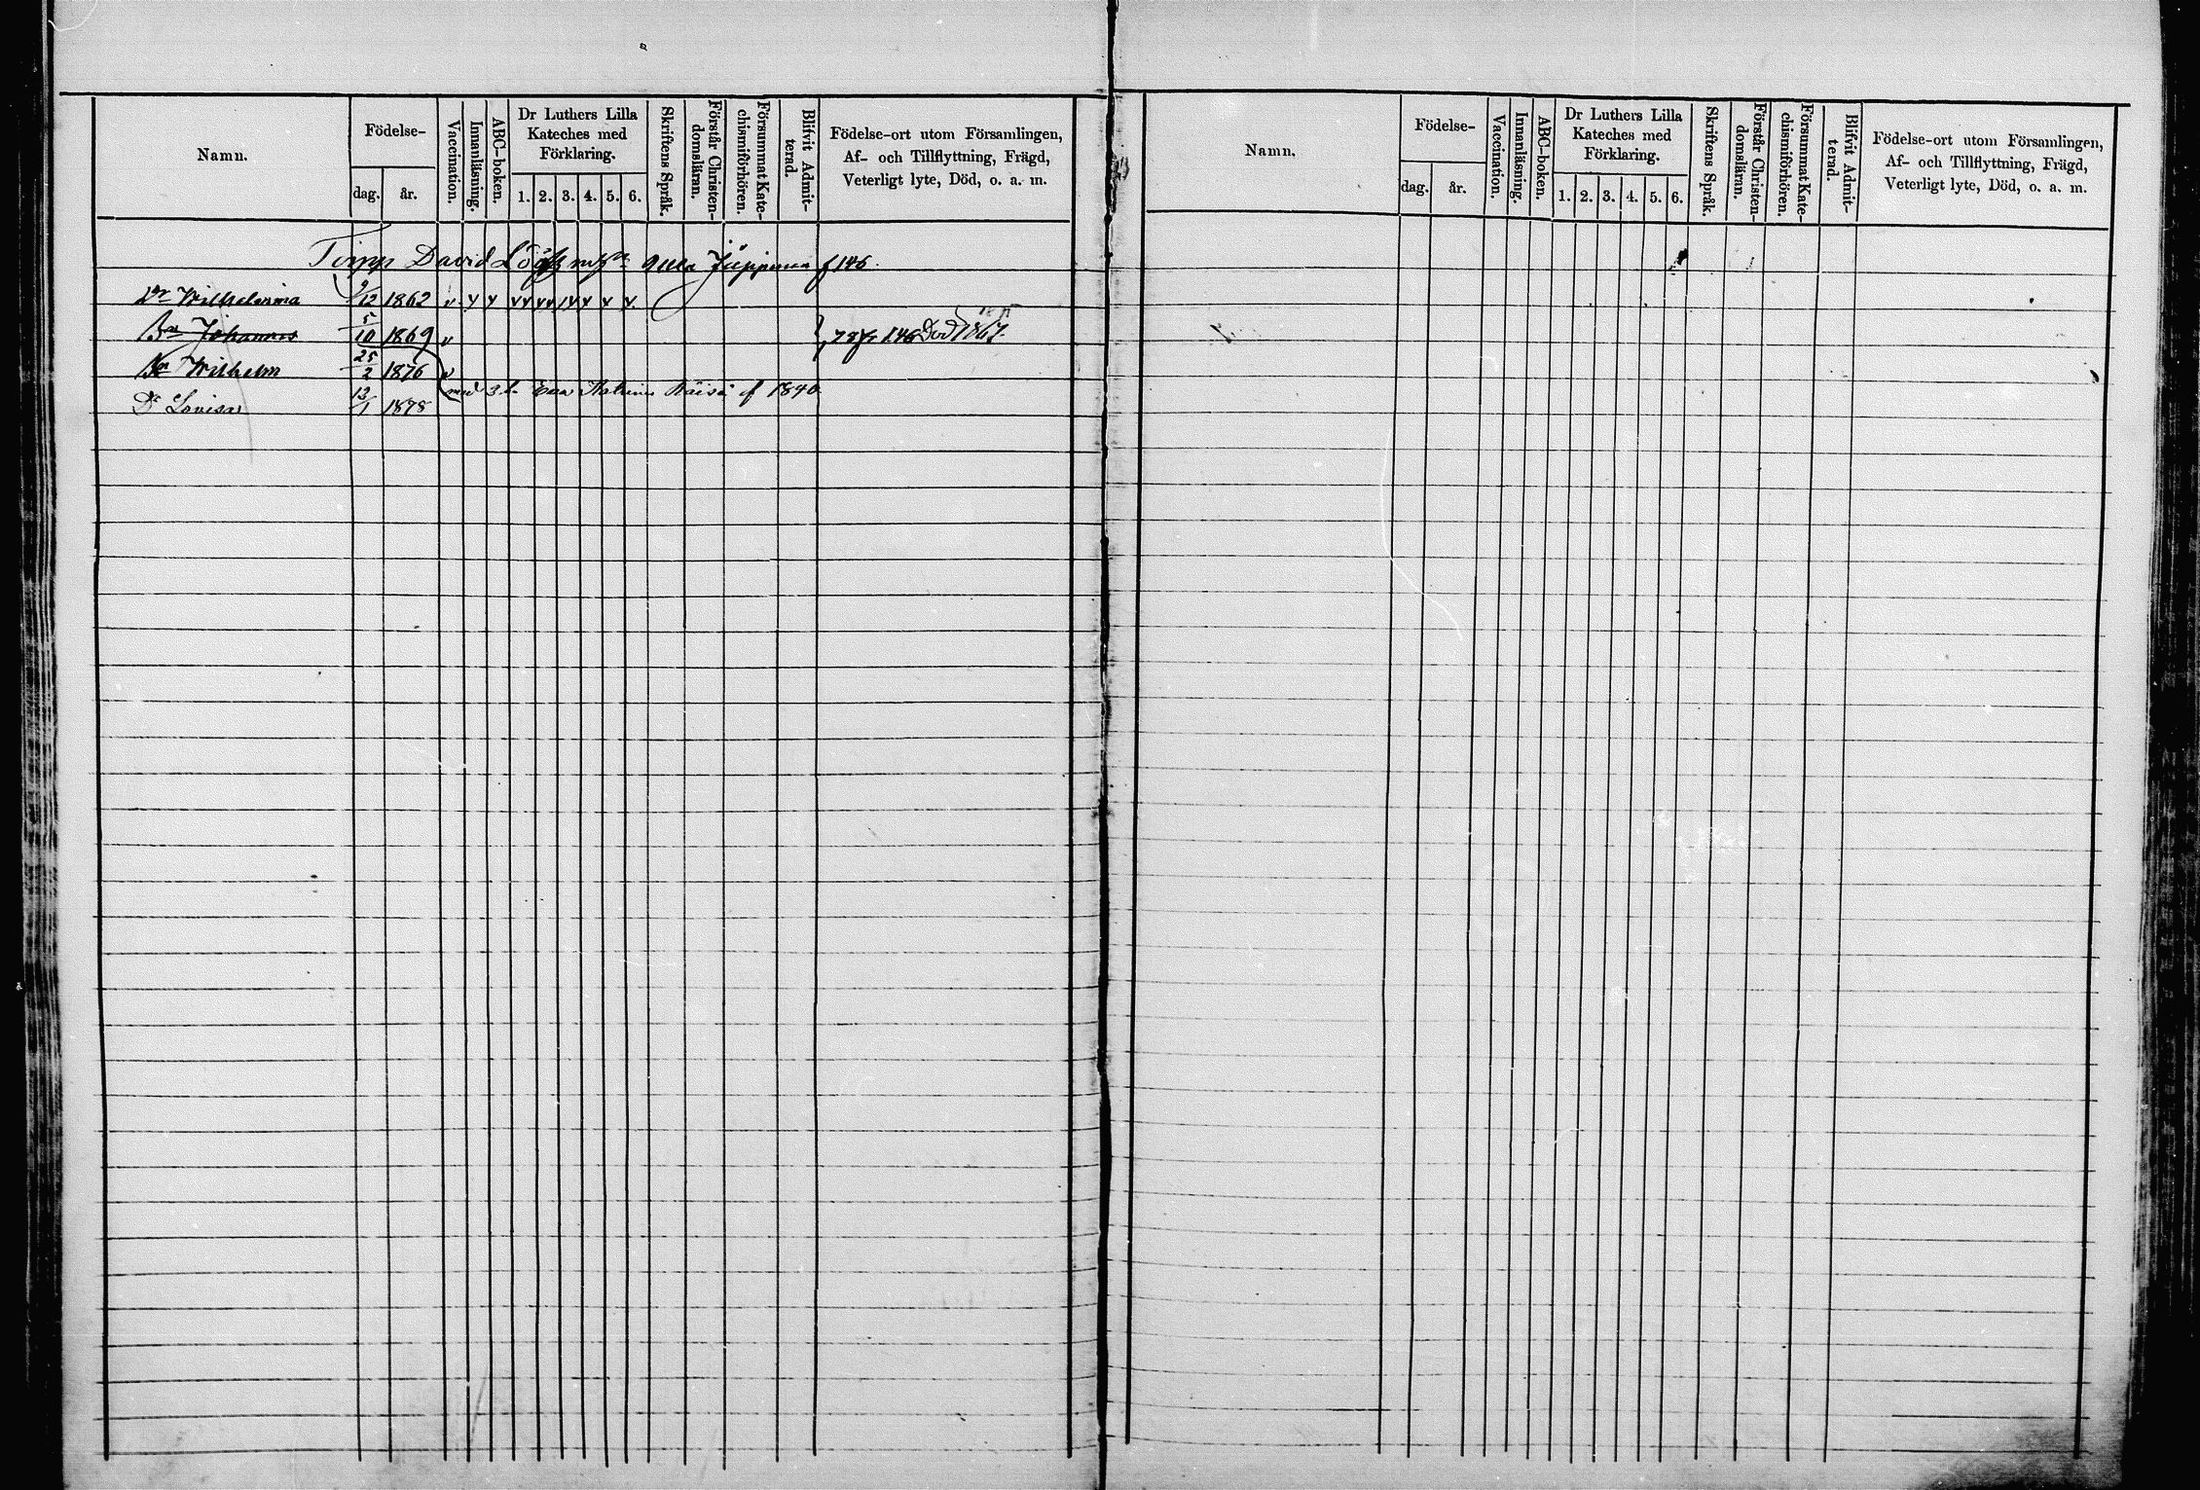 Namn.
Födelse-
dag.
år.
Vaccination.
Innanläsning.
ABC-boken.
Dr Luthers Lilla
Kateches med
Förklaring.
1. 2. 3. 4. 5. 6.
Skriftens Språk.
Förstår Christen-
domsläran.
Försummat Kate-
chismiförhören.
Blifvit Admit-
terad.
Födelse-ort utom Församlingen,
Af- och Tillflyttning, Frägd,
Veterligt lyte, Död, o. a. m.
David Jäppinen f 146.
Dr Wilhelmina 9/12 1862 v v v v v v v v v v v v
Sn Johannes 5/10 1869 v
146 Död 1867.
Sn Wilhelm 25/2 1876 v
med 3 h. Eva Katrina Räisä f 1840
Dr Lovisa 13/1 1878
Namn.
Födelse-
dag.
år.
Vaccination.
Innanläsning.
ABC-boken.
Dr Luthers Lilla
Kateches med
Förklaring.
1. 2. 3. 4. 5. 6.
Skriftens Språk.
Förstår Christen-
domsläran.
Försummat Kate-
chismiförhören.
Blifvit Admit-
terad.
Födelse-ort utom Församlingen,
Af- och Tillflyttning, Frägd,
Veterligt lyte, Död, o. a. m.